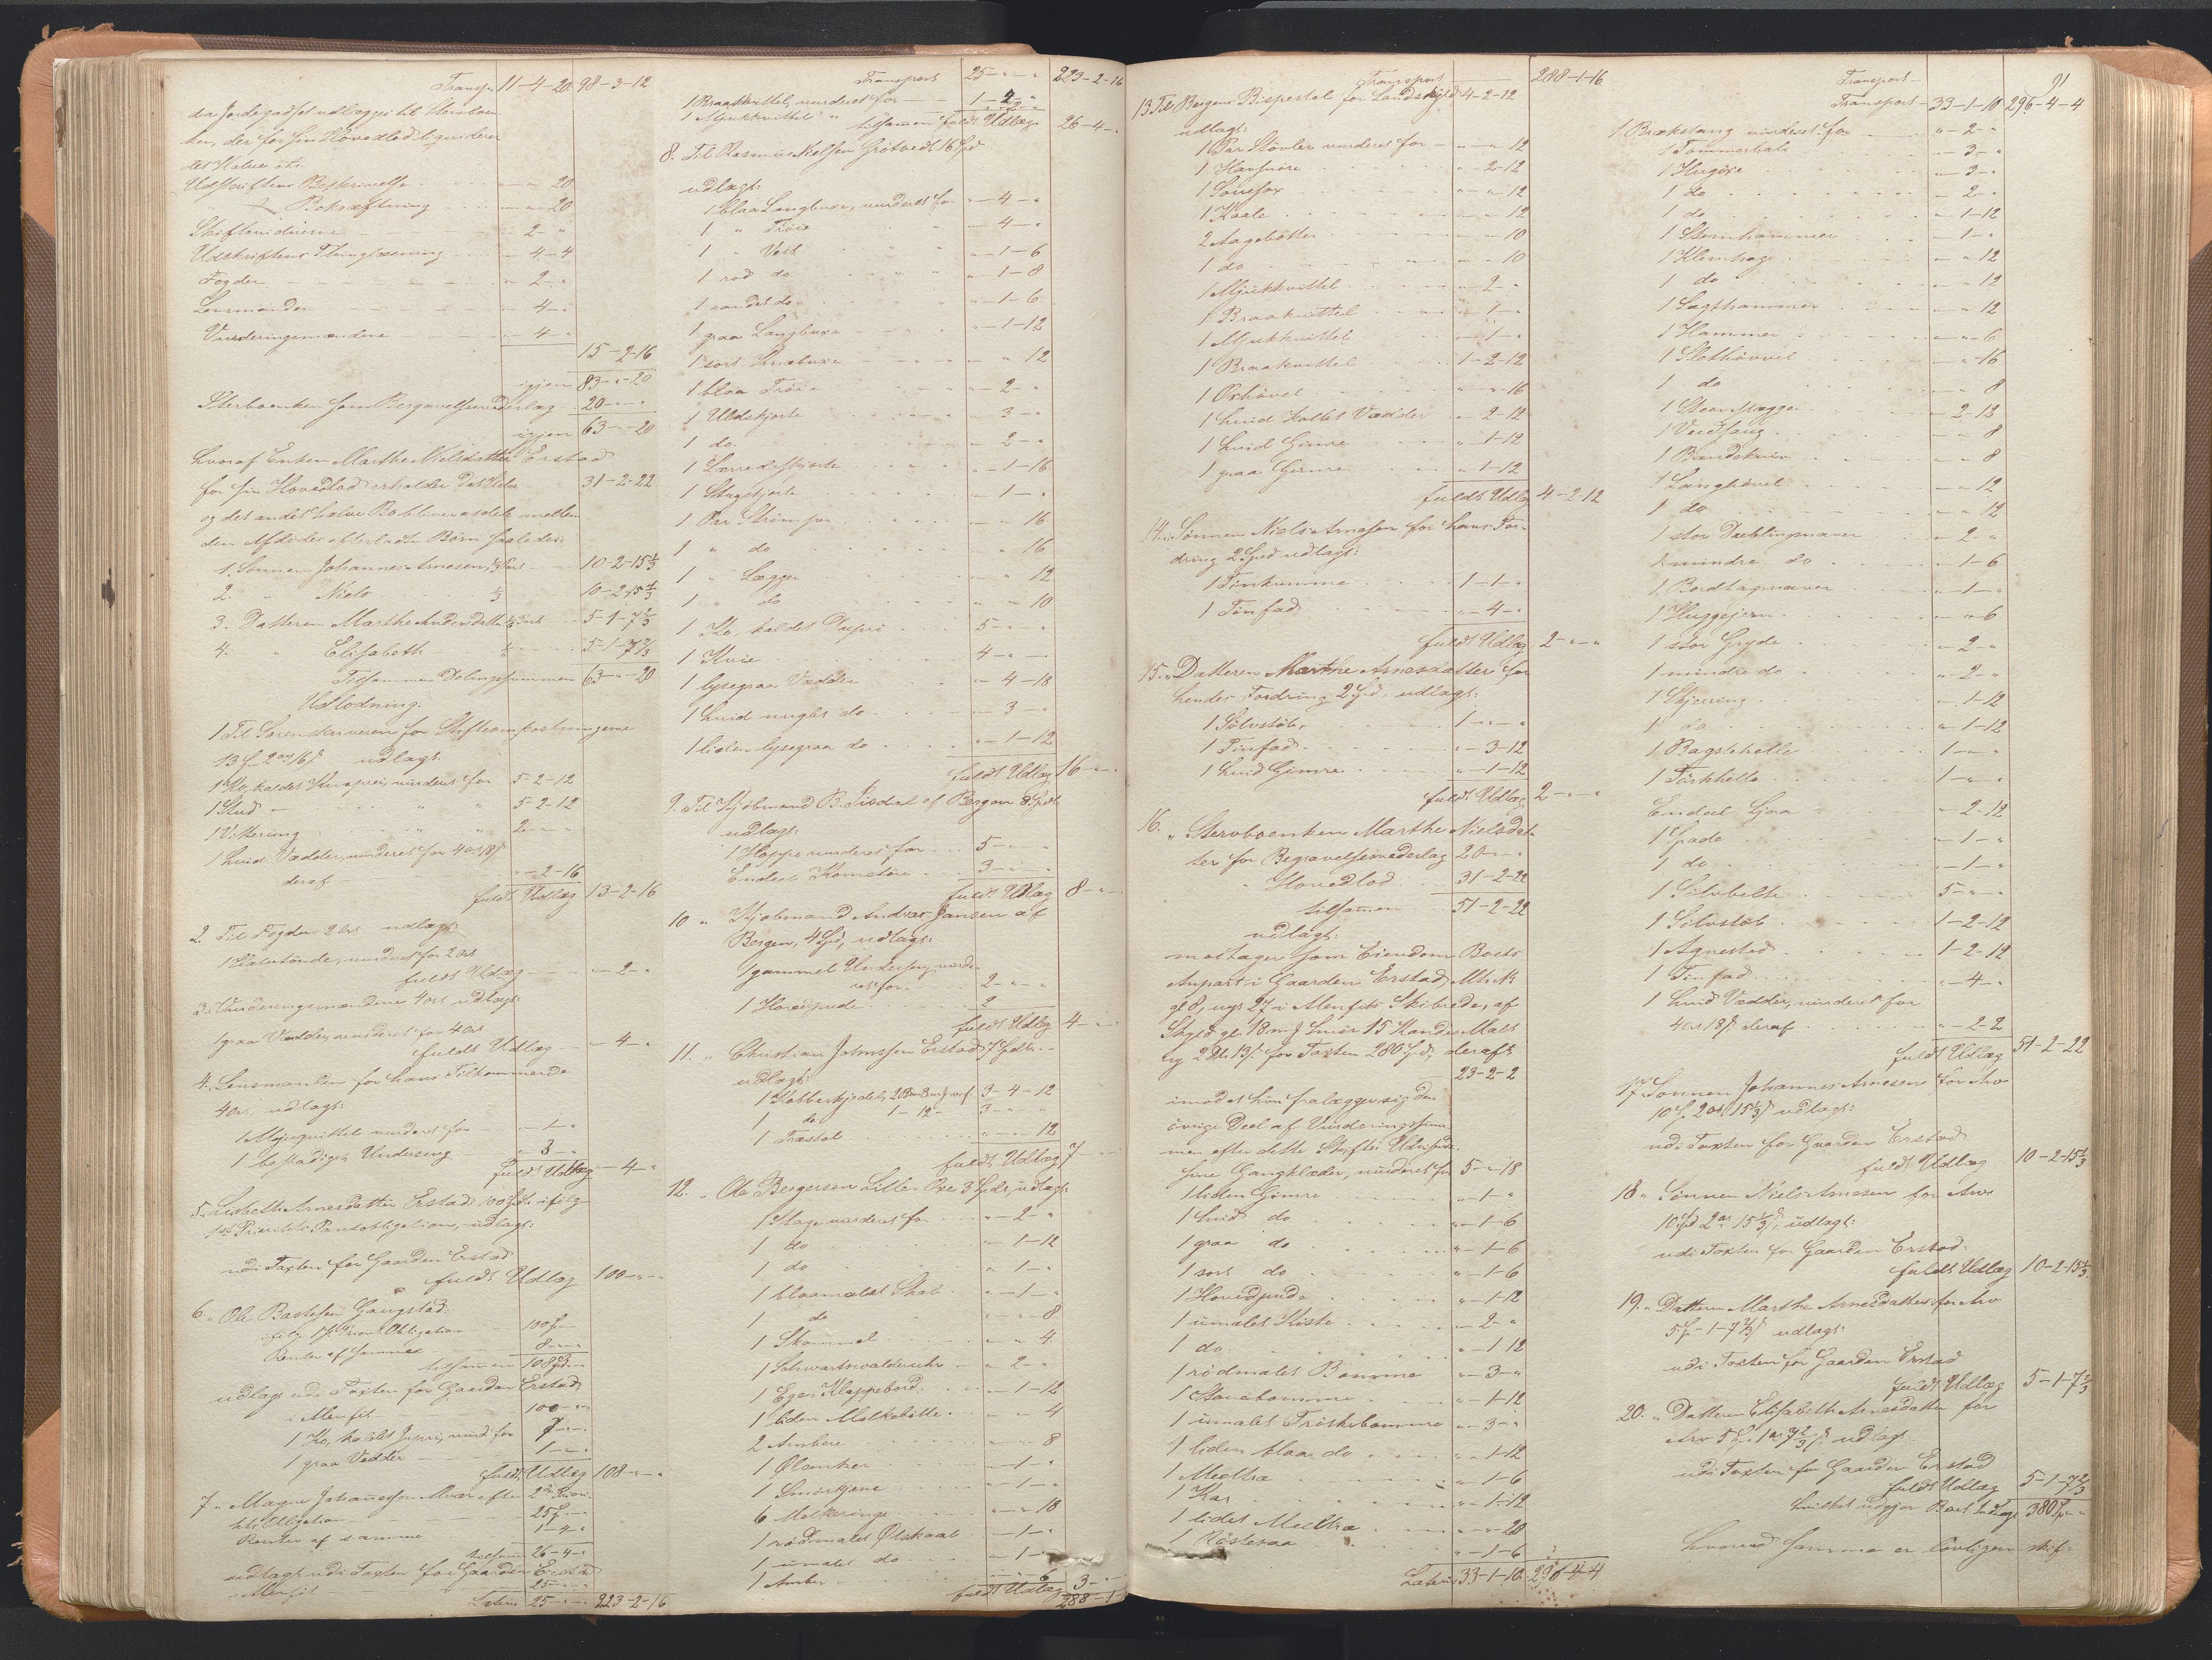 Transp. 11-4-20 98-3-12
da Jordegodset udlægges til Sterboen-
ken, der for sin Hovedlod liqviderer
det Halve
Udskriftens Beskrivelse " - " - 20
" Bekræftning " - " - 20
Skiftevidnerne " - 2 - "
Udskriftens Thinglæsning " - 4 - 4
Fogden " - 2 - "
Lensmanden " - 4 - "
Vurderingsmændene " - 4 - "
15-2-16
igjen 83-"-20
Sterboenken som Begravelsesvederlag 20-"-"
igjen 63-"-20
hvoraf Enken Marthe Nielsdatter Erstad
for sin Hovedlod erholder det Halve 31-2-22
og det andet halve Bo bliver at dele mellem
den Afdødes efterladte Børn saaledes:
1. Sønnen Johannes Arnesen, 1/3 Part 10-2-15 1/3
2. " Niels 1/3 10-2-15 1/3
3. Datteren Marthe Arnesdatter 1/6 Part 5-1-7 2/3
4. " Elisabeth 1/6 5-1-7 2/3
Tilsammen Delingssummen 63-"-20
Udlodning:
1. Til Sorenskriveren for Skifteomkostningerne
13 Spd 2 ort 16 s udlagt
1 Ko, kaldet Knapri, vurderet for 5-2-12
1 Stud " " 5-2-12
1 Vettering " " 2-"-"
1 hvid Vædder, vurderet for 4 ort 8 s
deraf "-2-16
fuldt Udlæg 13-2-16
2. Til Fogden 2 Ort udlagt:
1 Halvtønde, vurderet for 2 Ort
fuldt Udlæg "-2-"
3. Vurderingsmændene 4 Ort udlagt:
1 graa Vædder, vurderet for 4 Ort
fuldt Udlæg "-4-"
4. Lensmanden for hans Tilkommende
4 Ort, udlagt:
1 Mjugquittel vurderet for "-1-"
1 bestadiget Underseng "-3-"
fuldt Udlæg "-4-"
5. Lisbeth Arnesdatter Erstad 100 Spd. ifølge
1ste Prioritets Pantobligation, udlagt:
udi Taxten for Gaarden Erstad
fuldt Udlæg 100-"-"
6. Ole Baatesen Gaugstad
ifølge Obligation 100 Spd
Renter af samme 8-"-"
tilsammen 108 Spd
udlagt udi Taxten for Gaarden Erstad
i Alenfit 100-"-"
1 Ko, kaldet Jupri, vurd. for 7-"-"
1 graa Vædder 1-"-"
fuldt Udlæg 108-"-"
7. Magne Johannessen efter 2den Priori-
tets Obligation 25 Spd
Renter af samme 1-4-"
tilsammen 26-4-"
udlagt udi Taxten for Gaarden Erstad
i Alenfit 25-"-"
Lateris 25-"-" 223-2-16
Transport 25-"-" 223-2-16
1 Braakvittel, vurderet for 1-2-"
1 Mjukkvittel " "-2-"
tilsammen fuldt Udlæg 26-4-"
8. Til Rasmus Nielsen Grøtvedt 16 Spd
udlagt:
1 blaa Langbuxe, vurderet for "-4-"
1 " Trøie "-4-"
1 " Vest "-1-6
1 rød do "-1-8
1 randet do "-1-6
1 graa Langbuxe "-1-12
1 sort Knæbuxe "-"-12
1 blaa Trøie "-2-"
1 Uldskjorte "-3-"
1 do. "-2-"
1 Lærredsskjorte "-1-16
1 Strigskjorte "-1-"
1 Par Strømper "-"-16
1 " do "-"-16
1 " Lægger "-"-12
1 " do "-"-10
1 Ko, kaldet Dupri 5-"-"
1 Kvie 4-"-"
1 lysegraa Vædder "-4-18
1 hvid unglet do "-3-"
1 liden lysegraa do "-1-12
fuldt Udlæg 16-"-"
9. Til Kjøbmand B. Lisdal af Bergen 8 Spd
udlagt:
1 Hoppe vurderet for 5-"-"
Endeel Kornstøre 3-"-"
fuldt Udlæg 8-"-"
10 " Kjøbmand Andreas Jansen af
Bergen, 4 Spd, udlagt:
1 gammel Underseng vurde-
ret for 2-"-"
1 Hovedpude 2
fuldt Udlæg 4-"-"
11. " Christian Johnssen Erstad 7 Spd
udlagt:
1 Kobberkjedel, 3-4-12
1 do 1-12- 3-"-"
1 Træstol "-"-12
fuldt Udlæg 7-"-"
12. " Ole Bergersen Lille-Oxe 3 Spd, udlagt:
1 Stage vurderet for "-2-"
1 do "-1-12
1 do "-1-"
1 blaamalet Skab "-1-"
1 do "-"-8
1 Skammel "-"-4
1 Schwartswalderuhr "-2-"
1 Ege Klappebord "-1-12
1 liden Melkebøtte "-"-4
2 Ambere "-"-8
1 Ølanker "-1-"
1 Smørkjerne "-1-"
6 Melkeringe "-"-18
1 rødmalet Ølskaal "-1-"
1 umalet do "-1-"
1 Amber "-"-6
fuldt Udlæg 3-"-"
288-1-16
Transport 288-1-16
13. Til Bergens Bispestol for Landskyld 4-2-12
udlagt:
1 Par Støvler vurderet for "-"-12
1 Havsnøre "-2-12
1 Sauesax "-"-12
1 Kaale "-"-12
2 Aagebøtter "-"-10
1 do "-"-10
1 Mjukkvittel "-2-"
1 Braakvittel "-1-"
1 Mjukkvittel "-1-"
1 Braakvittel 1-2-12
1 Oxhøvel "-"-16
1 hvid kollet Vædder "-2-12
1 hvid Gimre "-1-12
1 graa Gimre "-1-12
fuldt Udlæg 4-2-12
14. Sønnen Niels Arnesen for hans For-
dring 2 Spd udlagt:
1 Tinkumme 1-1-"
1 Tinfad "-4-"
fuldt Udlæg 2-"-"
15. " Datteren Marthe Arnesdatter for
hendes Fordring 2 Spd, udlagt:
1 Sølvstøb 1-"-"
1 Tinfad "-3-12
1 hvid Gimre "-1-12
fuldt Udlæg 2-"-"
16. " Stervboenken Marthe Nielsdat-
ter for Begravelsesvederlag 20-"-"
" Hovedlod 31-2-22
tilsammen 51-2-22
udlagt:
modtager som Eiendom Boets
Anpart i Gaarden Erstad, Mtrik.
gl 8, nyt 27 i Alenfits Skibrede, af
Skyld gl. 18 m Smør 15 Kander Malt
ny 2 Dlr 13 s. for Taxten 280 Spd, deraf
23-2-2
imod at hun fralægger sig den
øvrige Deel af Vurderingssum-
men efter dette Skiftes Udvisende.
sine Gangklæder, vurderet for 5-"-18
1 liden Gimre "-1-"
1 hvid do "-1-6
1 graa do "-1-6
1 sort do "-1-6
1 Hovedpude "-1-12
1 umalet Kiste "-2-"
1 do. "-1-12
1 rødmalet Bomme "-3-"
1 Stavebomme "-1-12
1 umalet Trøskebomme "-3-"
1 liden blaa do "-1-12
1 Meeltræ "-1-6
1 Kar "-1-12
1 lidet Meeltræ "-"-20
1 Høstesaa "-1-6
Lateris 33-1-10 296-4-4
91
Transport
Transport 33-1-10 296-4-4
1 Brækstang vurderet for "-2-"
1 Tommerbæle "-3-"
1 Hugøxe "-3-"
1 do "-2-"
1 do "-1-12
1 Steenhammer "-1-"
1 Kleinhage "-"-12
1 do "-"-12
1 Lægthammer "-"-12
1 Hammer "-"-6
1 Sletthøvvel "-"-16
1 do "-"-8
1 Steenslægge "-2-12
1 Veidsaug "-"-8
1 Bandekniv "-"-8
1 Langhøvel "-"-12
1 do "-"-12
1 stor Dæblingnaver "-2-"
1 mindre do "-1-6
1 Bordtagnaver "-1-"
1 Huggejern "-"-6
1 stor Gryde "-2-"
1 mindre do "-2-"
1 Skjæreng "-1-12
1 do "-1-12
1 Bagstehelle 1-"-"
1 Tørkhelle 1-"-"
Endeel Ljaa "-2-12
1 Spade "-1-"
1 do "-1-"
1 Sølvbelte 5-"-"
1 Sølvstøb 1-2-12
1 Agnestød 1-2-12
1 Tinfad "-4-"
1 hvid Vædder, vurderet for
4 ort 18 s deraf "-2-2
fuldt Udlæg 51-2-22
17. Sønnen Johannes Arnesen for Arv
10 Sp. 2 ort 15 1/3 s udlagt:
udi Taxten for Gaarden Erstad
fuldt Udlæg 10-2-15 1/3
18 " Sønnen Niels Arnesen for Arv
10 Spd 2 ort 15 1/3 s udlagt:
udi Taxten for Gaarden Erstad.
fuldt Udlæg 10-2-15 1/3
19. " Datteren Marthe Arnesdatter for Arv
5 Sp.-1-7 2/3 udlagt:
udi Taxten for Gaarden Erstad
fuldt Udlæg 5-1-7 2/3
20. " Datteren Elisabeth Arnesdatter for
Arv 5 Sp. 1 ort 7 2/3 s. udlagt
udi Taxten for Gaarden Erstad
fuldt Udlæg 5-1-7 2/3
hvilket udgjør Boets Indtægt 380 Sp-"-"
hvorved samme er lovligen skif-